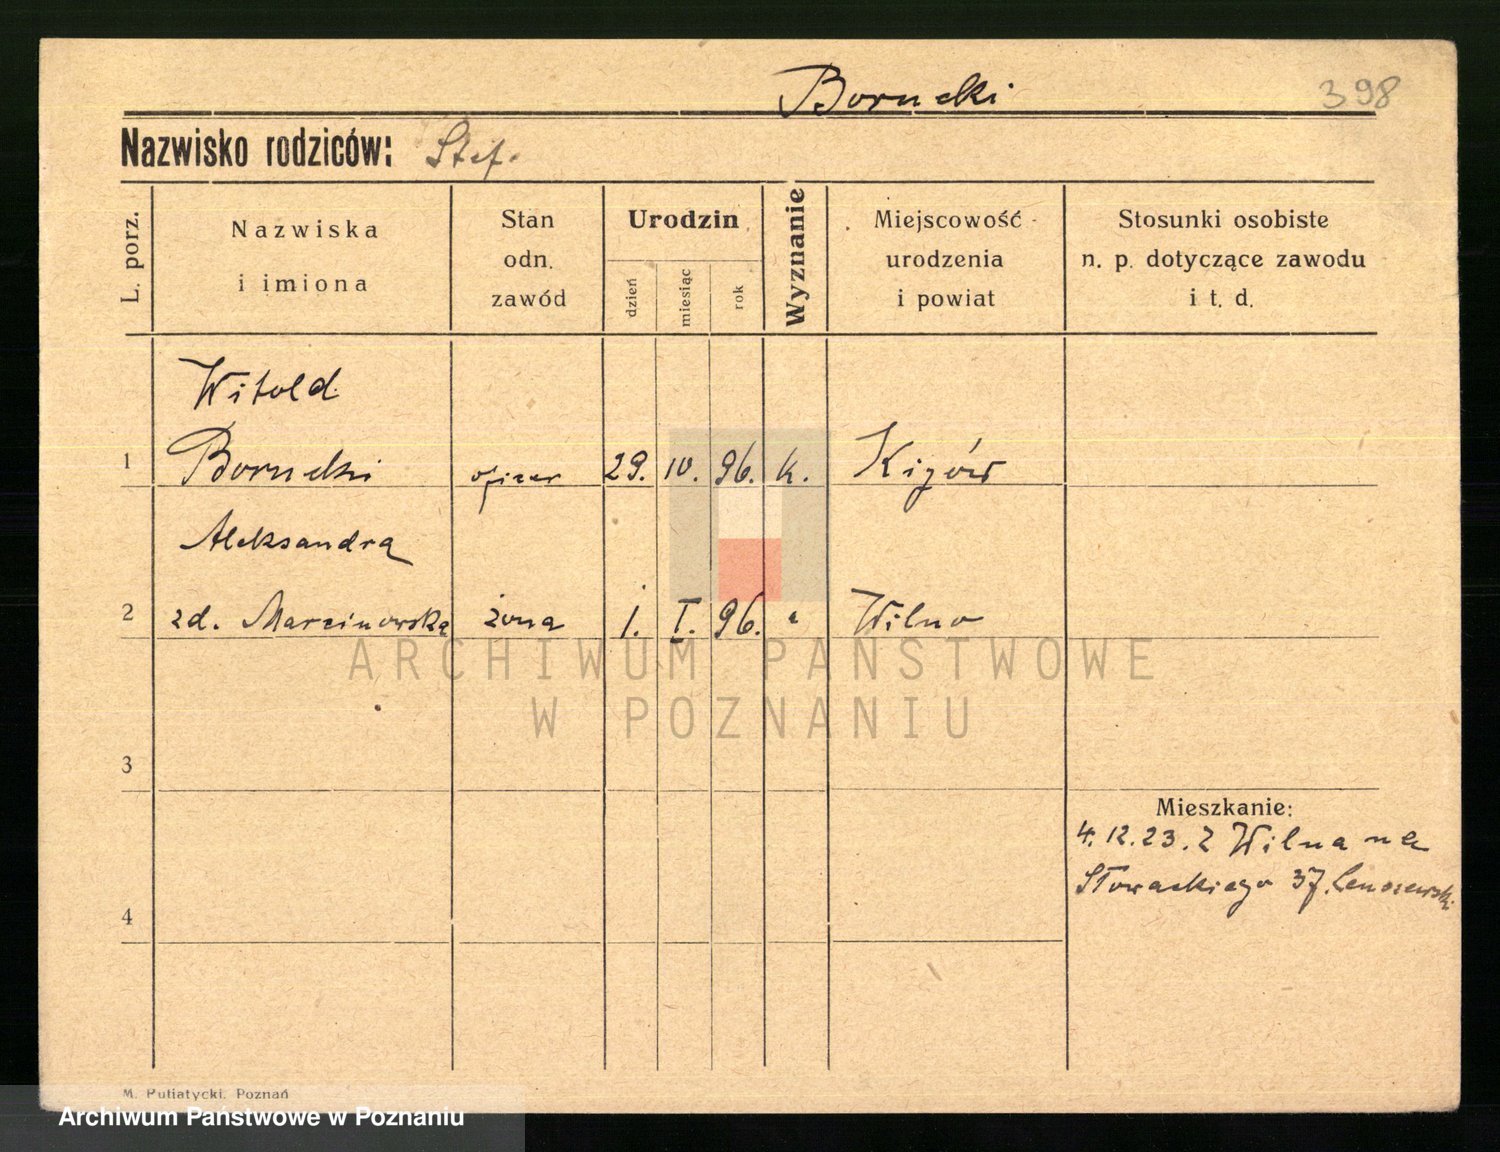 Borucki 398
Nazwisko rodziców: Stef.
L. porz.
Nazwiska
i imiona
Stan
odn.
zawód
Urodzin
dzień
miesiąc
rok
Wyznanie
Miejscowość
urodzenia
i powiat
Stosunki osobiste
n. p. dotyczące zawodu
i t. d.
Witold
1 Borucki oficer 29. IV. 96. k. Kijów
Aleksandra
2 zd. Marcinowska żona 1. I. 96. " Wilno
ARCHIWUM PAŃSTWOWE
W POZNANIU
3
Mieszkanie:
4. 12. 23. Z Wilna na
Słowackiego 37.
4
M. Putiatycki, Poznań
Archiwum Państwowe w Poznaniu